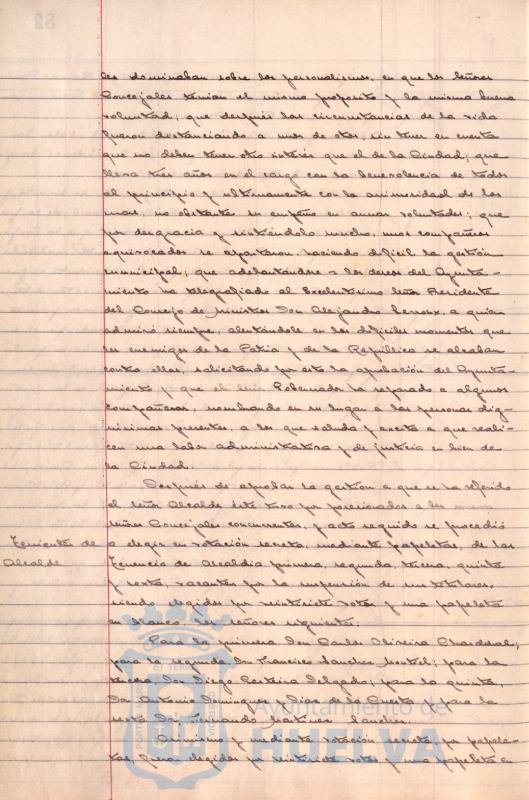 les dominaban sobre los personalismos, en que los Señores
Concejales tenian el mismo proposito y la misma buena
voluntad; que después las circunstancias de la vida
fueron distanciando a unos de otros, sin tener en cuenta
que no deben tener otro interés que el de la Ciudad; que
lleva tres años en el cargo con la benevolencia de todos
al principio y ultimamente con la animosidad de los
mas, no obstante su empeño en aunar voluntades; que
por desgracia y sintiéndolo mucho, unos compañeros
equivocados se apartaron, haciendo dificil la gestión
municipal; que adelantándose a los deseos del Ayunta-
miento ha telegrafiado al Excelentisimo Señor Presidente
del Consejo de Ministros Don Alejandro Lerroux, a quien
admiró siempre, alentándole en los dificiles momentos que
los enemigos de la Patria y de la República se alzaban
contra ellas, solicitando por esto la aprobación del Ayunta-
miento y que el señor Gobernador ha separado a algunos
compañeros, nombrando en su lugar a las personas dig-
nisimas presentes, a los que saluda y excita a que reali-
cen una labor administrativa y de justicia en bien de
la Ciudad.
Después de aprobar la gestion a que se ha referido
el señor Alcalde éste tuvo por posesionados a los nuevos
señores Concejales concurrentes, y acto seguido se procedió
Tenientes de Alcalde
a elegir en votación secreta, mediante papeletas, de las
Tenencia de Alcaldia primera, segunda, tercera, quinta
y sexta, vacantes por la suspensión de sus titulares,
siendo elegidos por veintisiete votos y una papeleta
en blanco, los señores siguientes.
Para la primera Don Carlos Oliveira Chardenal;
para la segunda, Don Francisco Sanchez Mentel; para la
tercera, Don Diego Delgado; para la quinta,
Don Antonio Dominguez y Diaz de la Cuesta y para la
sexta Don Fernando Martinez Sanchez.
Asimismo y mediante votación secreta, por papele-
tas, fueron elegidos por veintisiete votos y una papeleta en
Ayuntamiento de
HUELVA